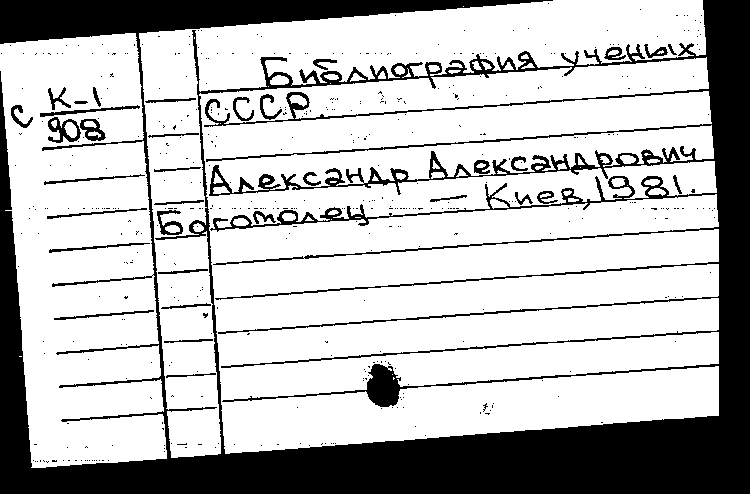 Библиография ученых
С К-1
908
СССР.
Александр Александрович
Богомолец — Киев, 1981.